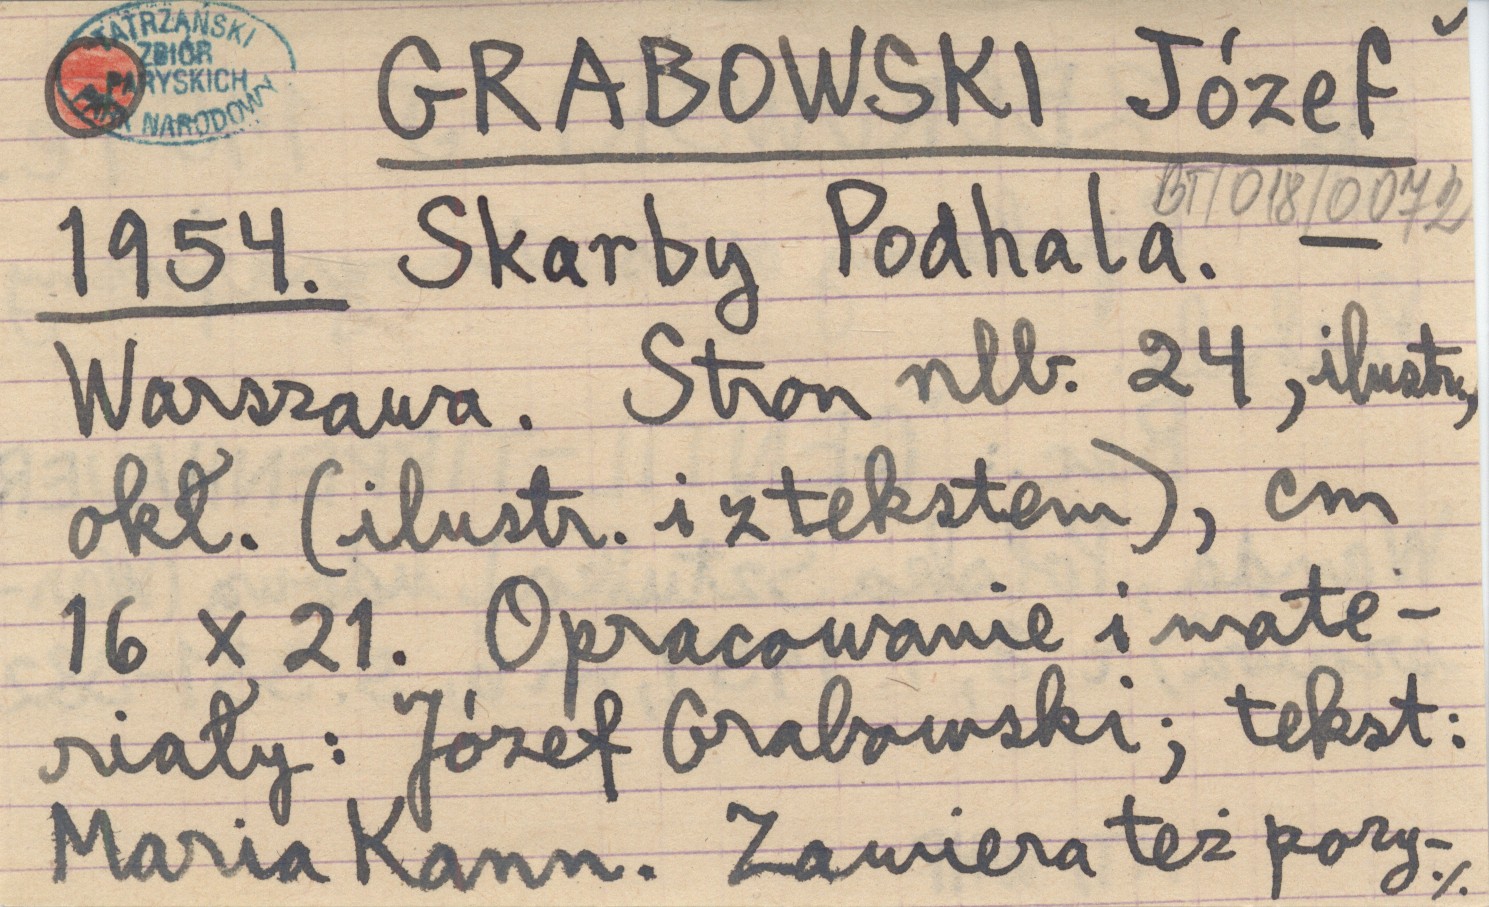 TATRZAŃSKI
ZBIÓR
PARYSKICH
PARK NARODOWY
GRABOWSKI Józef
BT/018/0072
1954. Skarby Podhala. —
Warszawa. Stron nlb. 24, ilustr.,
okł. (ilustr. i z tekstem), cm
16 x 21. Opracowanie i mate-
riały: Józef Grabowski; tekst:
Maria Kann. Zawiera też pozy-
./.